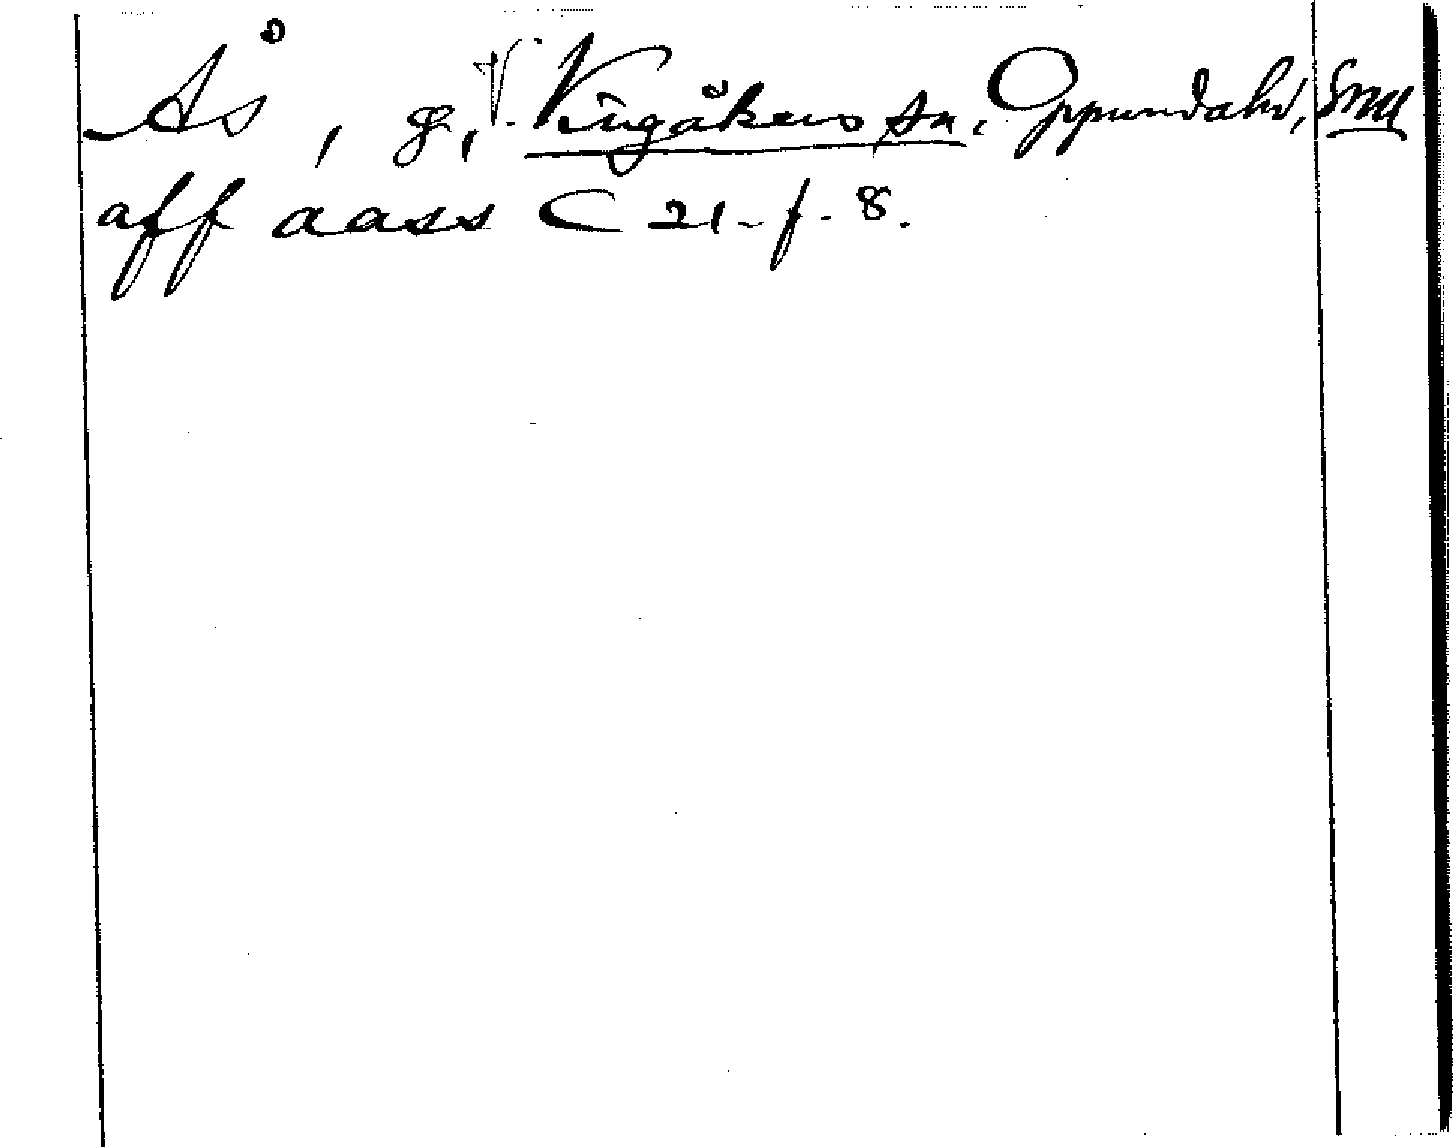 Ås, g, V. Vingåkers sn, Oppunda hd, Sml
aff aass C 21. f. 8.